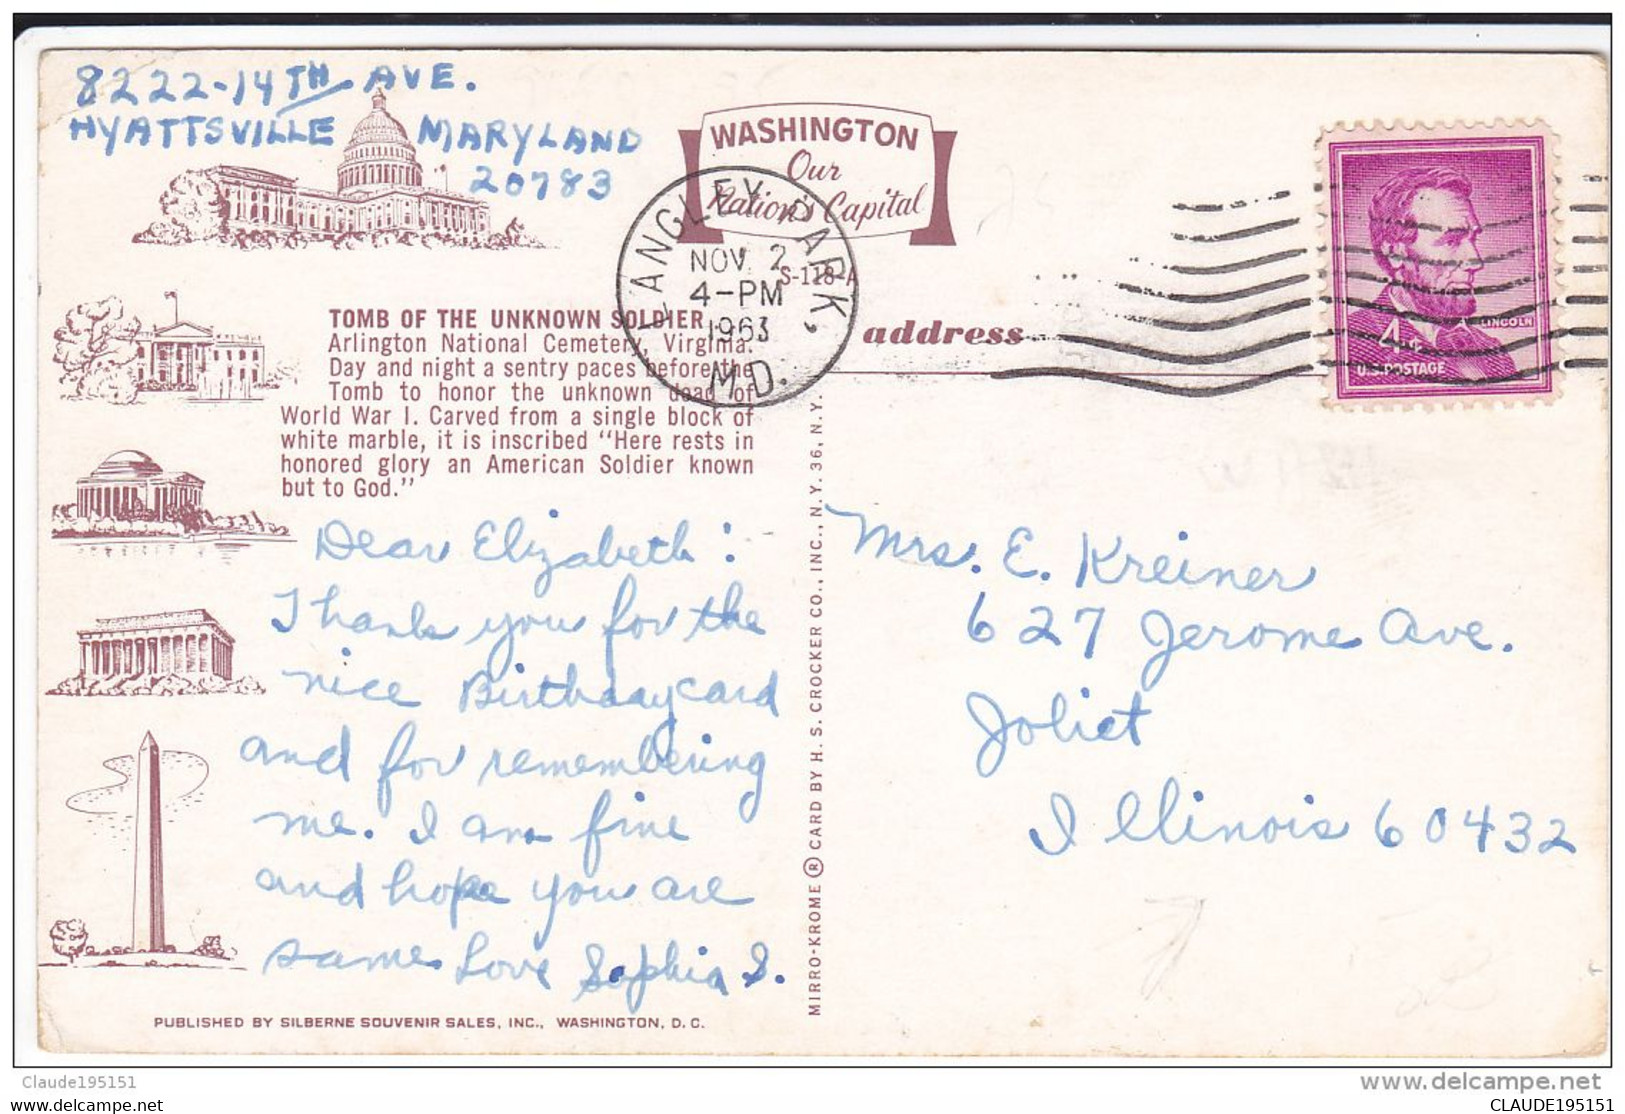 8222-14TH AVE.
HYATTSVILLE MARYLAND
20783
WASHINGTON
Our
Nation's Capital
S-118-A
LANGLEY PARK,
NOV 2
4-PM
1963
M.D.
TOMB OF THE UNKNOWN SOLDIER,
Arlington National Cemetery, Virginia.
Day and night a sentry paces before the
Tomb to honor the unknown dead of
World War I. Carved from a single block of
white marble, it is inscribed "Here rests in
honored glory an American Soldier known
but to God."
address
4¢
LINCOLN
U.S. POSTAGE
Dear Elizabeth:
Thank you for the
nice Birthday card
and for remembering
me. I am fine
and hope you are
same Love Sophia S.
Mrs. E. Kreiner
627 Jerome Ave.
Joliet
Illinois 60432
MIRRO-KROME ® CARD BY H. S. CROCKER CO., INC., N.Y. 36, N.Y.
PUBLISHED BY SILBERNE SOUVENIR SALES, INC., WASHINGTON, D. C.
Claude195151
www.delcampe.net
Claude195151
CLAUDE195151